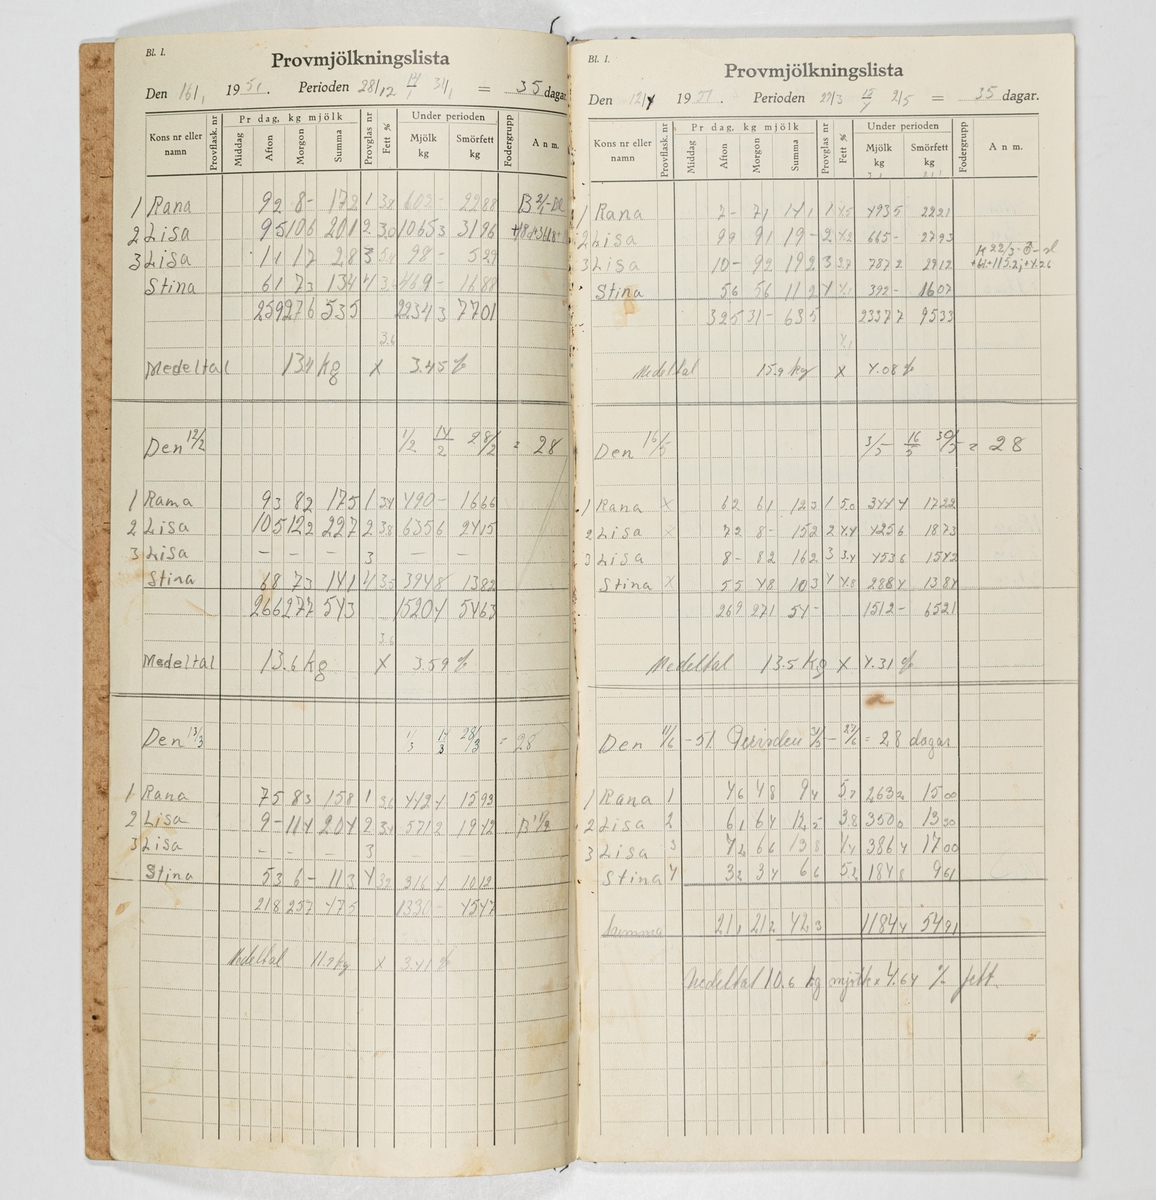 Bl. 1.
Provmjölkningslista
Den 16/1 1951. Perioden 28/12 14/1 31/1 = 35 dagar.
Kons nr eller namn
Provflask. nr
Pr dag, kg mjölk
Middag
Afton
Morgon
Summa
Provglas nr
Fett %
Under perioden
Mjölk kg
Smörfett kg
Fodergrupp
Anm.
1 Rana 92 8- 172 1 3.8 602- 2288
2 Lisa 95 106 201 2 3.0 10653 3196
3 Lisa 11 17 28 3 98- 529
Stina 61 73 134 4 469- 1688
259 276 535 22343 7701
3.6
Medeltal 13.4 kg x 3.45 %
Den 12/2 1/2 14/2 28/2 = 28
1 Rama 93 82 175 1 3.4 490- 1666
2 Lisa 105 122 227 2 3.8 6356 2415
3 Lisa - - - 3 - -
Stina 68 73 141 4 3.5 3948 1382
266 277 543 15204 5463
3.6
Medeltal 13.6 kg x 3.59 %
Den 13/3 1/3 14/3 28/3 = 28
1 Rana 75 83 158 1 3.6 4424 1593
2 Lisa 9- 114 204 2 3.4 5712 1942
3 Lisa - - - 3 - -
Stina 53 6- 113 4 3.2 3164 1012
218 257 475 1330- 4547
Medeltal 11.9 kg x 3.41 %
Bl. 1.
Provmjölkningslista
Den 12/4 1951. Perioden 29/3 15/4 2/5 = 35 dagar.
Kons nr eller namn
Provflask. nr
Pr dag, kg mjölk
Middag
Afton
Morgon
Summa
Provglas nr
Fett %
Under perioden
Mjölk kg
Smörfett kg
Fodergrupp
Anm.
1 Rana 7- 71 141 1 4.5 4935 2221
2 Lisa 99 91 19- 2 4.2 665- 2793
3 Lisa 10- 92 192 3 3.7 7872 2912
Stina 56 56 112 4 4.1 392- 1607
325 31- 635 23377 9533
4.1
Medeltal 15.9 kg x 4.08 %
Den 16/5 3/5 16/5 30/5 = 28
1 Rana x 62 61 123 1 5.0 3444 1722
2 Lisa x 72 8- 152 2 4.4 4256 1873
3 Lisa 8- 82 162 3 3.4 4536 1542
Stina x 55 48 103 4 4.8 2884 1384
269 271 54- 1512- 6521
Medeltal 13.5 kg x 4.31 %
Den 11/6 -51. Perioden 31/5 - 27/6 = 28 dagar
1 Rana 1 46 48 94 57 2632 1500
2 Lisa 2 61 64 12,5 38 3500 1330
3 Lisa 3 72 66 138 44 3864 1700
Stina 4 32 34 66 52 1848 961
Summa 21,1 21,2 42,3 11844 5491
Medeltal 10.6 kg mjölk x 4.64 % fett.